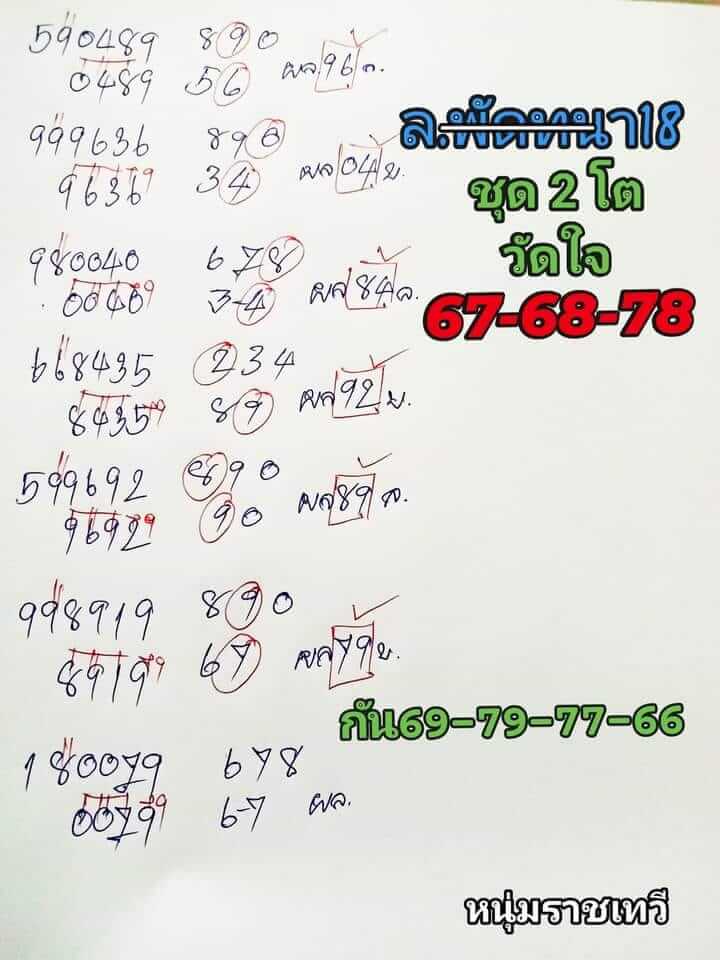 590489 890
0489 56 ผล 96 ล.
999636 890
9636 34 ผล 04 บ.
980040 678
0040 3-4 ผล 84 ล.
668435 234
8435 89 ผล 92 บ.
599692 890
9692 90 ผล 89 ล.
998919 890
8919 67 ผล 79 บ.
180079 678
0079 6-7 ผล.
ล.พัดทนา18
ชุด 2 โต
วัดใจ
67-68-78
กัน69-79-77-66
หนุ่มราชเทวี